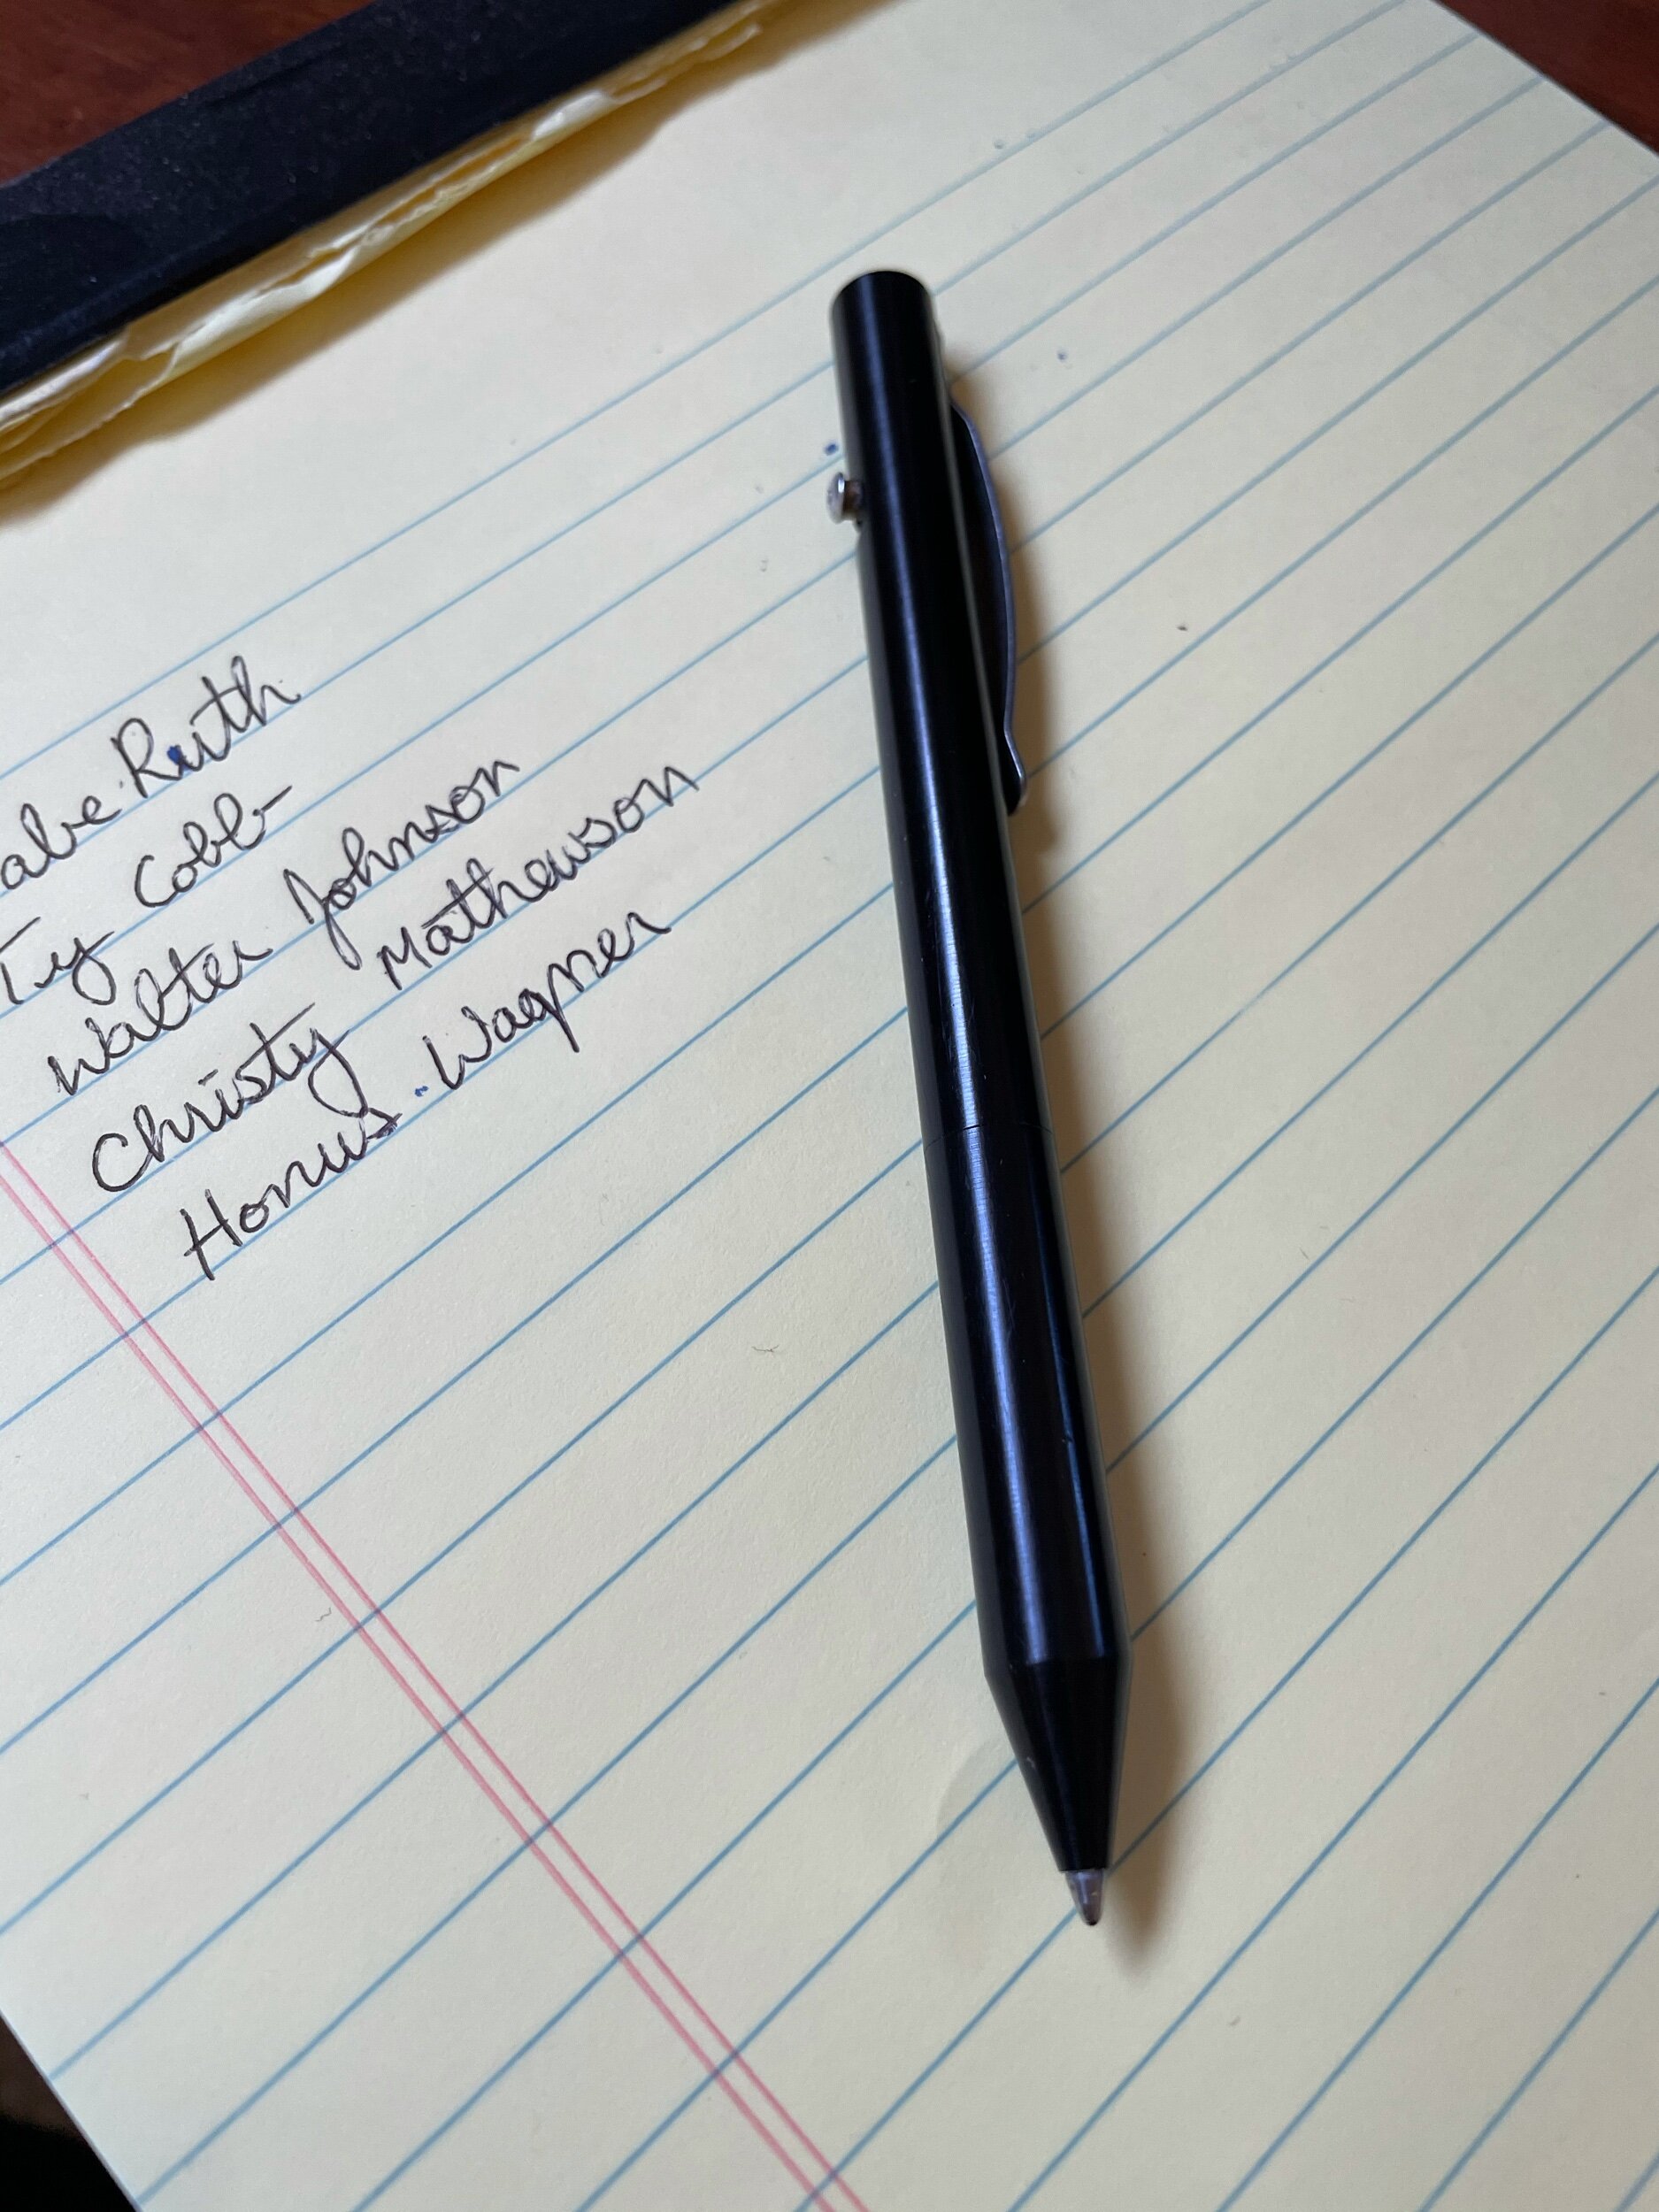 abe Ruth
Ty Cobb
Walter Johnson
Christy Mathewson
Honus Wagner